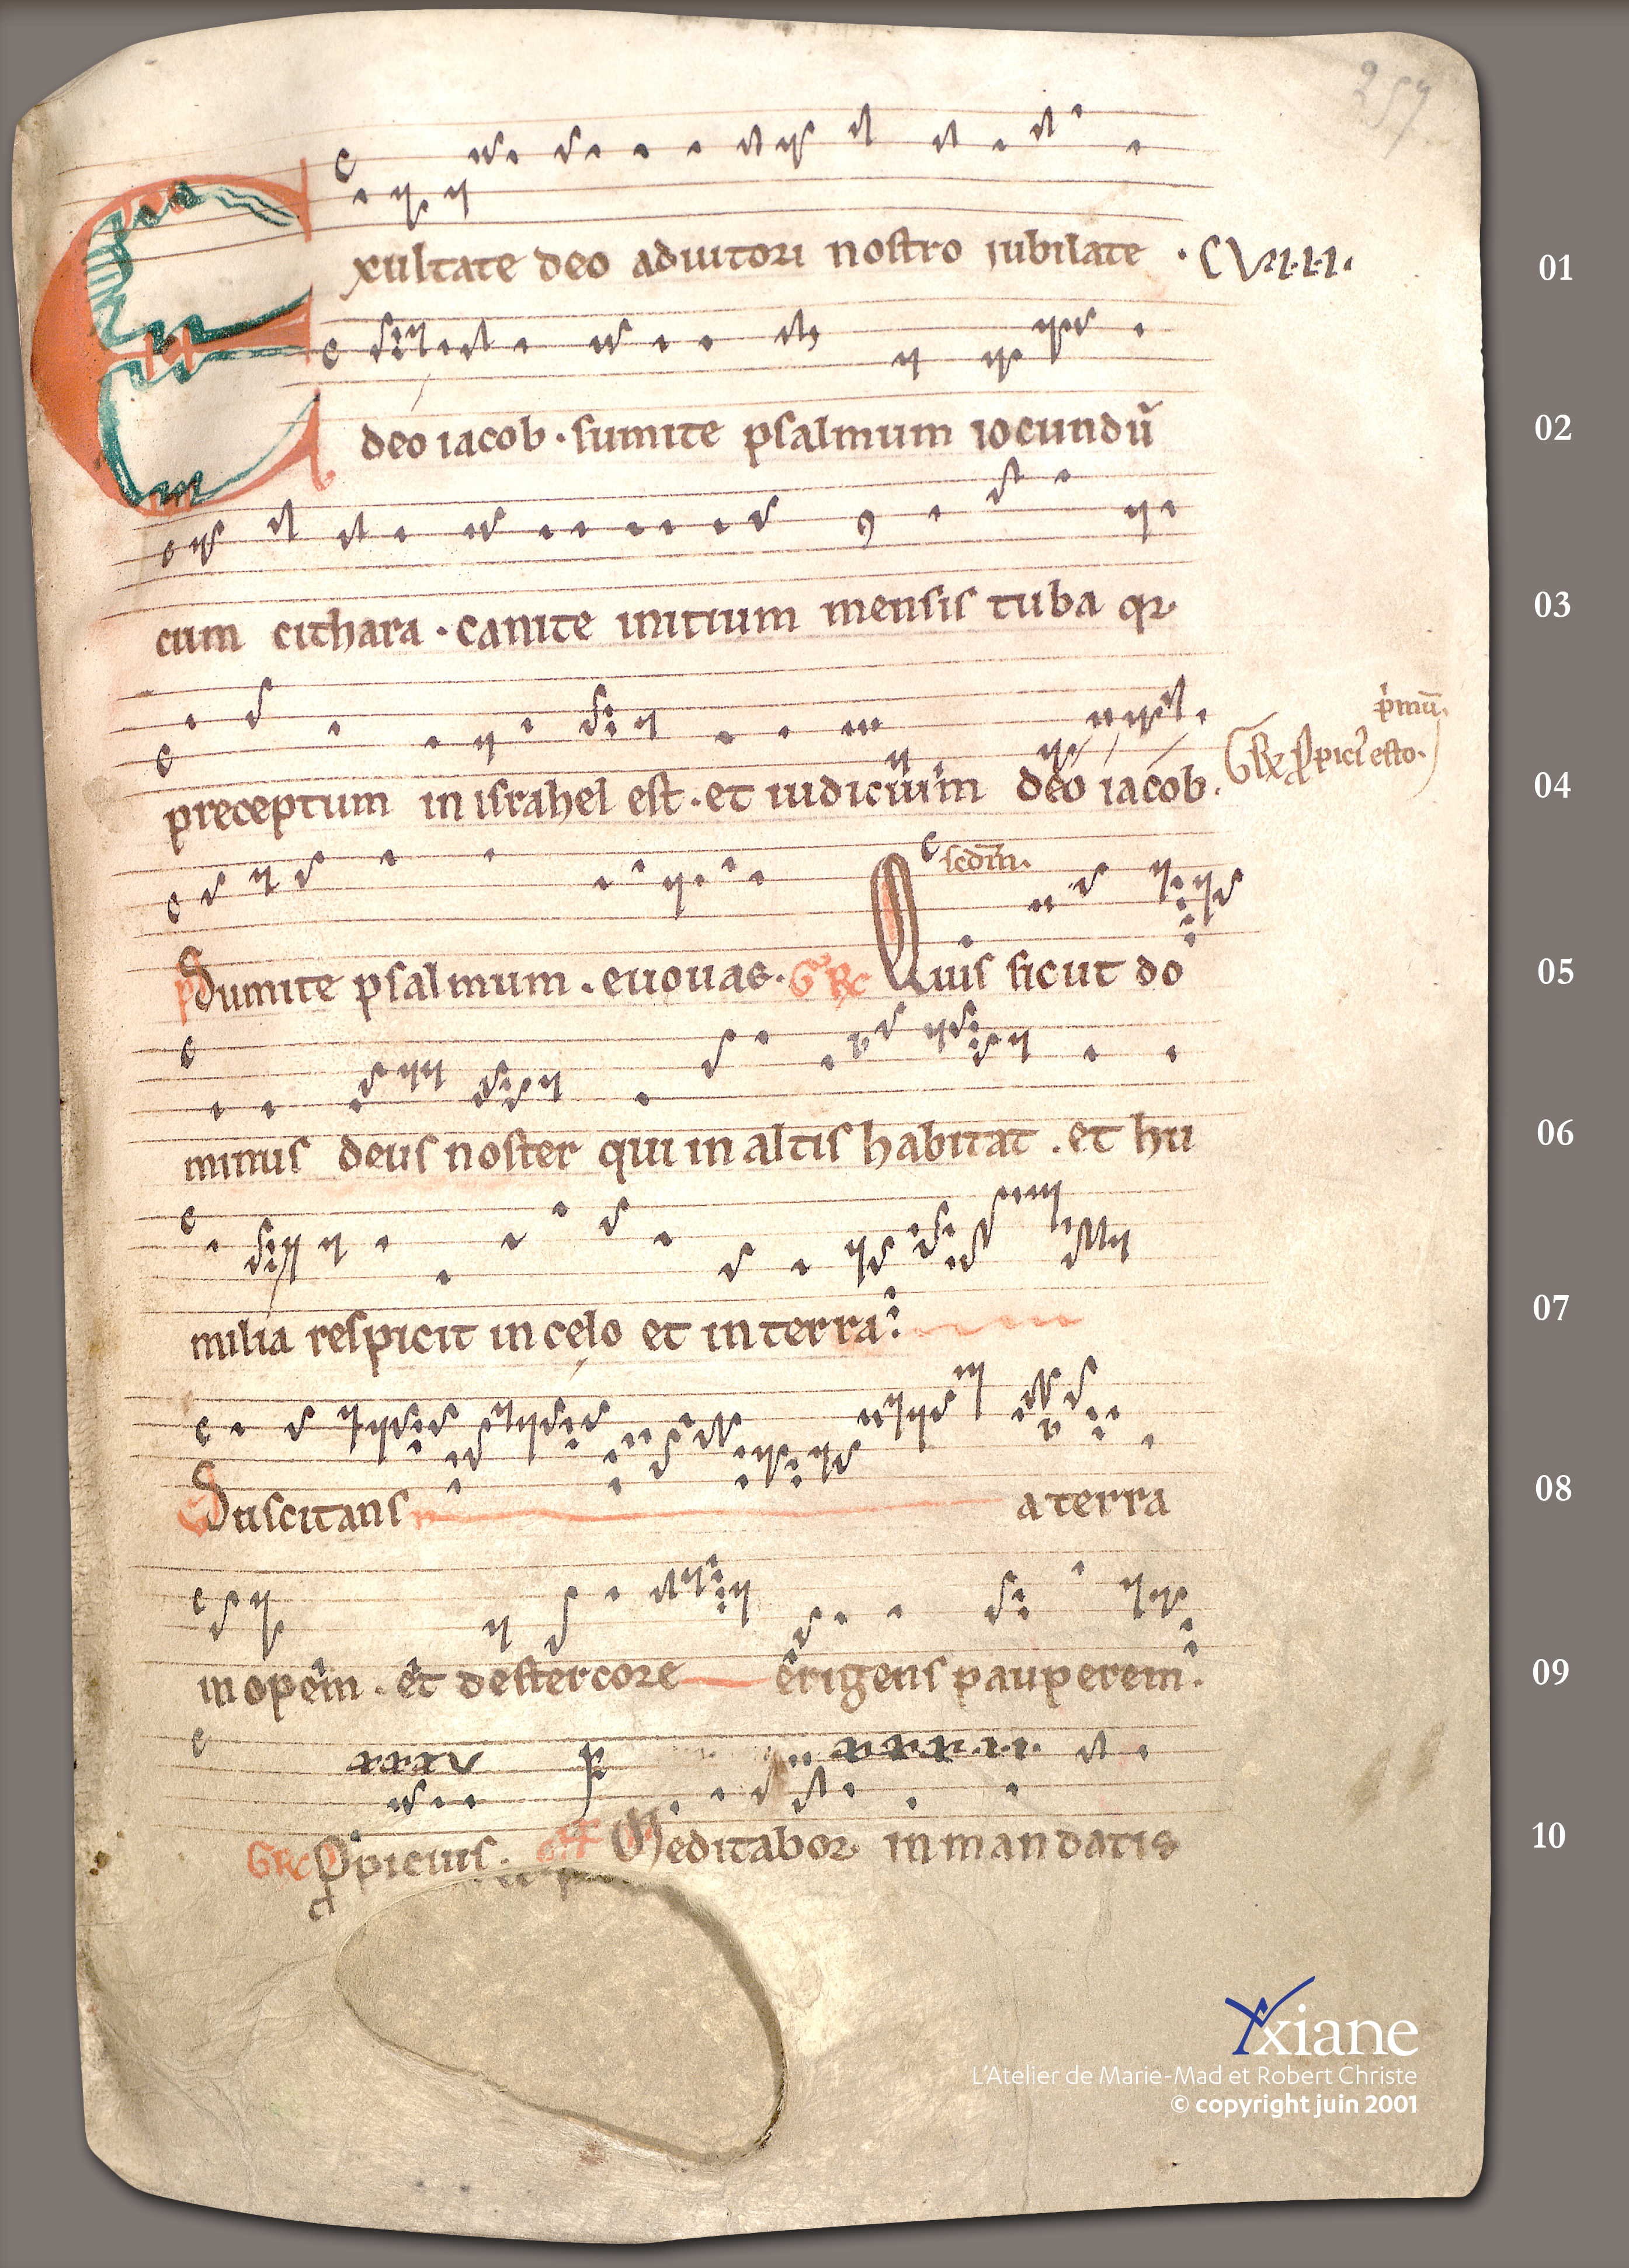 257
Exultate deo adiutori nostro iubilate · CVIIII.
01
deo iacob · sumite psalmum iocundū
02
cum cithara · canite initium mensis tuba qr
03
preceptum in israhel est · et iudicium deo iacob.
p'mū.
G R ꝓpici' esto.
04
scdm.
Sumite psalmum . euouae. Gr Rc Quis sicut do
05
minus deus noster qui in altis habitat . et hu
06
milia respicit in celo et in terra.
07
Suscitans a terra
08
inopem . et de stercore erigens pauperem.
09
xxxv
GRc Ppicius. Off Meditabor in mandatis
10
Yxiane
L'Atelier de Marie-Mad et Robert Christe
© copyright juin 2001